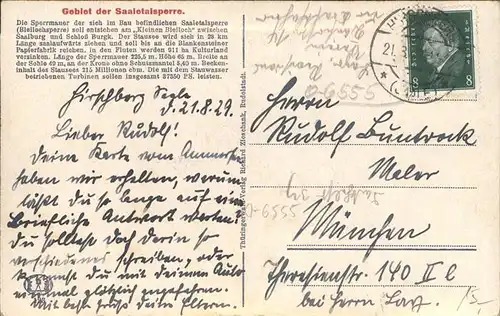 Gebiet der Saaletalsperre.
Die Sperrmauer der sich im Bau befindlichen Saaletalsperre
(Bleilochsperre) soll entstehen am „Kleinen Bleiloch“ zwischen
Saalburg und Schloß Burgk. Der Stausee wird sich in 28 km
Länge saalaufwärts ziehen und soll bis an die Blankensteiner
Papierfabrik reichen, in den Fluten werden 911 ha Kulturland
versinken. Länge der Sperrmauer 225,5 m, Höhe 65 m, Breite an
der Sohle 49 m, an der Krone ohne Schutzmantel 5,45 m. Becken-
inhalt des Stausees 215 Millionen cbm. Die mit dem Stauwasser
betriebenen Turbinen sollen insgesamt 37350 PS. leisten.
Hirschberg Saale
d. 21.8.29.
Lieber Rudolf!
Deine Karte vom
haben wir erhalten, warum
läßt du so lange auf eine
briefliche Antwort warten?
Du solltest doch darin so
verschiedenes schreiben, oder
du mit deinem Auto
glücklich angefahren.
Mit best. Grüß deine Eltern.
Thüringer Verlag Richard Zieschank, Rudolstadt.
8 8
Herrn
Rudolf Buntrock
Maler
München
Theresienstr. 140 II l
bei Herrn
0-6555
6555